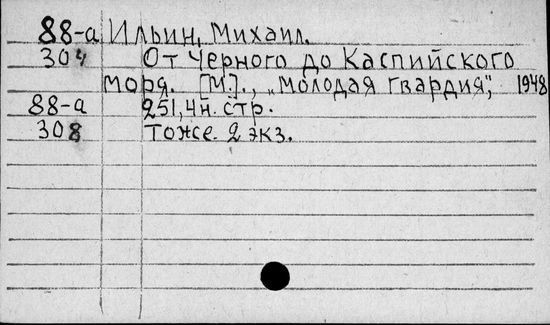 88-а Ильин, Михаил.
304 От Черного до Каспийского
моря. [М.]., „Молодая гвардия", 1948
88-а 251,4н. стр.
308 Тоже. 2 экз.